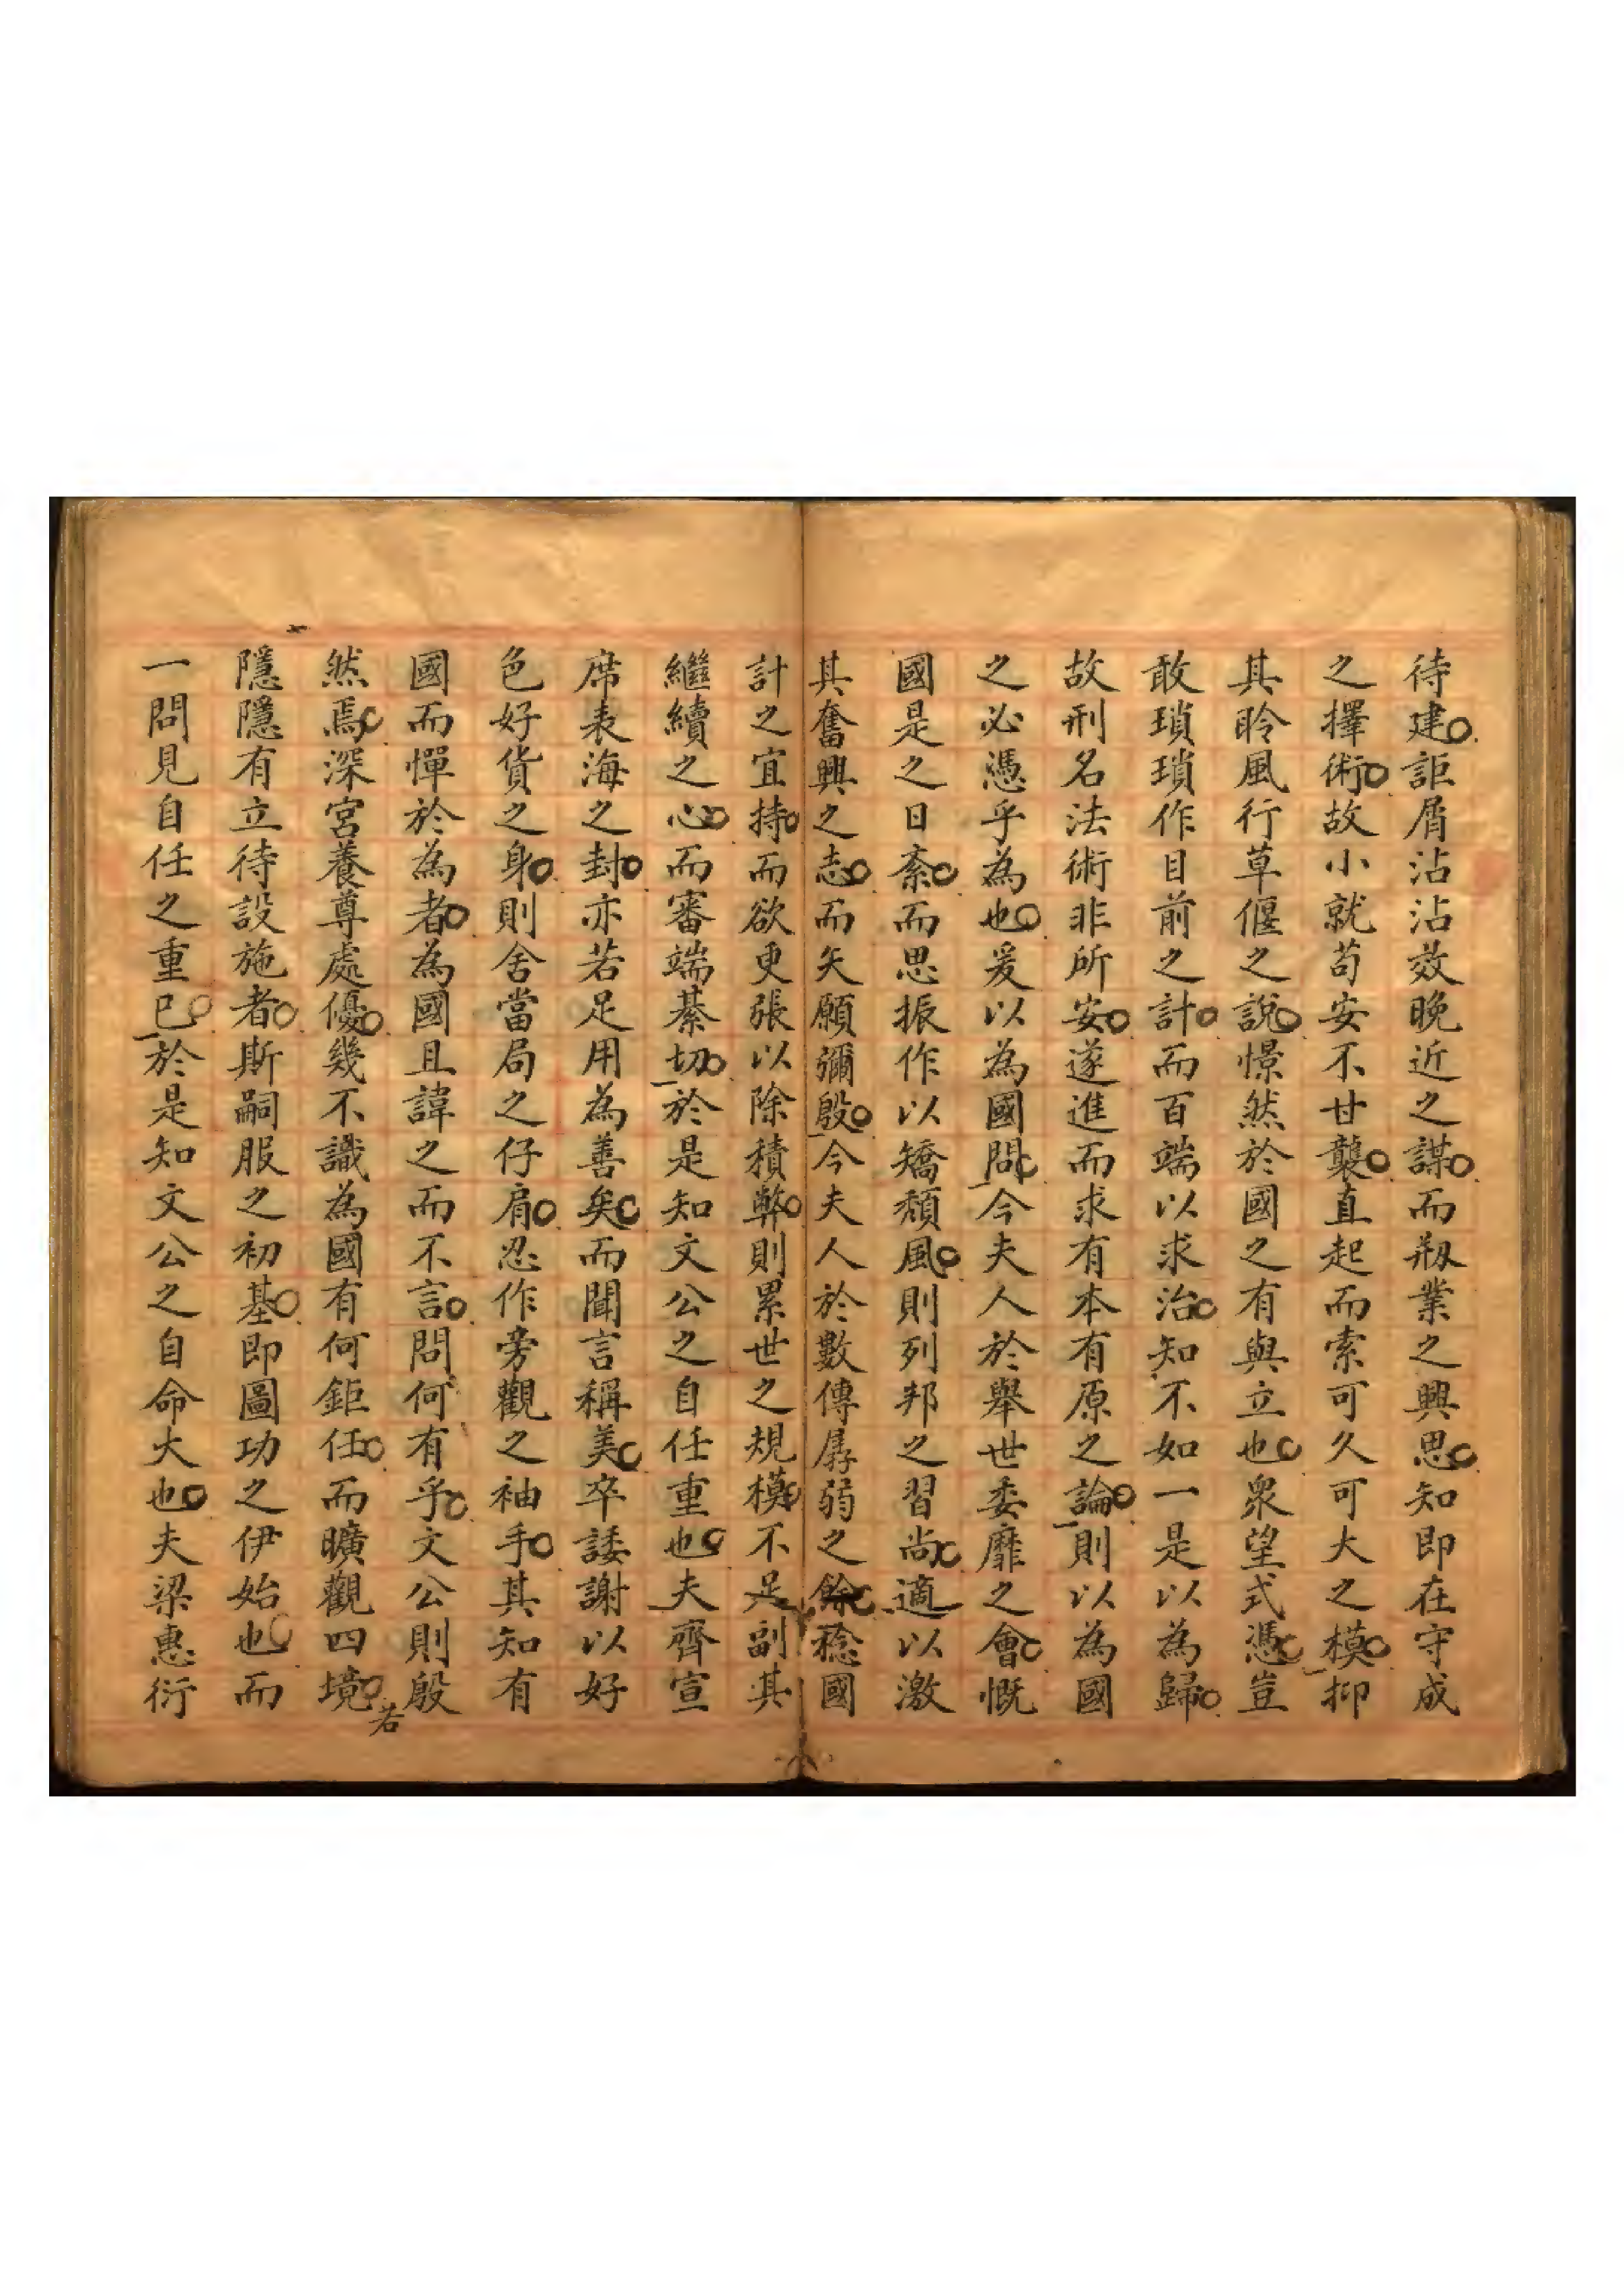 待建詎屑沾沾效晚近之謀而剏業之興思知即在守成
之擇術故小就苟安不甘襲直起而索可久可大之模抑
其聆風行草偃之說憬然於國之有與立也衆望式憑豈
敢瑣瑣作目前之計而百端以求治知不如一是以為歸
故刑名法術非所安遂進而求有本有原之論則以為國
之必憑乎為也爰以為國問今夫人於舉世委靡之會慨
國是之日紊而思振作以矯頹風則列邦之習尚適以激
其奮興之志而矢願彌殷今夫人於數傳孱弱之餘稔國
計之宜持而欲更張以除積弊則累世之規模不足副其
繼續之心而審端綦切於是知文公之自任重也夫齊宣
席表海之封亦若足用為善矣而聞言稱美卒諉謝以好
色好貨之身則舍當局之仔肩忍作旁觀之袖手其知有
國而憚於為者為國且諱之而不言問何有乎文公則殷
然焉深宮養尊處優幾不識為國有何鉅任而曠觀四境若
隱隱有立待設施者斯嗣服之初基即圖功之伊始也而
一問見自任之重已於是知文公之自命大也夫梁惠衍